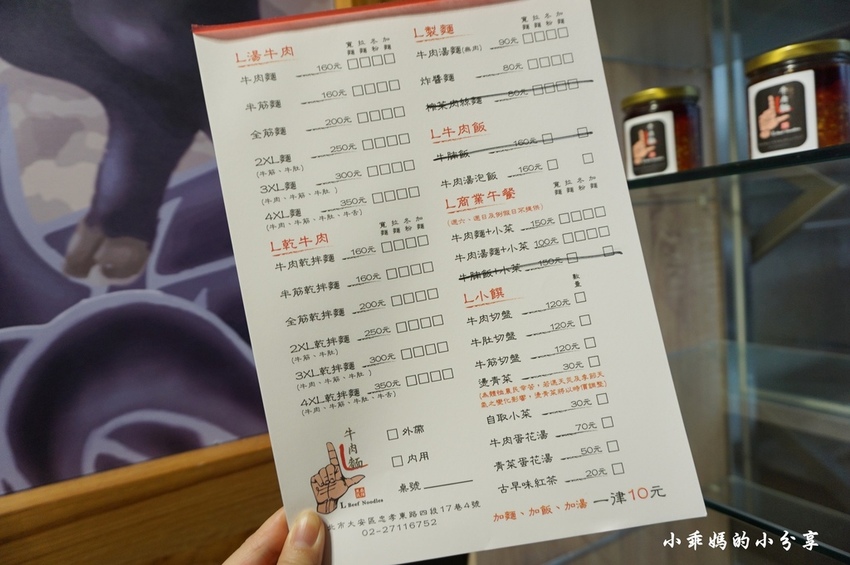 L湯牛肉
寬麵 拉麵 冬粉 加麵
牛肉麵 160元
半筋麵 160元
全筋麵 200元
2XL麵 250元
(牛筋、牛肚)
3XL麵 300元
(牛肉、牛筋、牛肚)
4XL麵 350元
(牛肉、牛筋、牛肚、牛舌)
L乾牛肉
寬麵 拉麵 冬粉 加麵
牛肉乾拌麵 160元
半筋乾拌麵 160元
全筋乾拌麵 200元
2XL乾拌麵 250元
(牛筋、牛肚)
3XL乾拌麵 300元
(牛肉、牛筋、牛肚)
4XL乾拌麵 350元
(牛肉、牛筋、牛肚、牛舌)
牛肉麵
L Beef Noodles
外帶
內用
桌號
北市大安區忠孝東路四段17巷4號
02-27116752
L製麵
寬麵 拉麵 冬粉 加麵
牛肉湯麵(無肉) 90元
炸醬麵 80元
榨菜肉絲麵 80元
L牛肉飯
牛腩飯 160元
牛肉湯泡飯 160元
L商業午餐
寬麵 拉麵 冬粉 加麵
(週六、週日及例假日不提供)
牛肉麵+小菜 150元
牛肉湯麵+小菜 100元
牛腩飯+小菜 150元
L小饌
數量
牛肉切盤 120元
牛肚切盤 120元
牛筋切盤 120元
燙青菜 30元
(為體恤農民辛苦，若遇天災及季節天
氣之變化影響，燙青菜將以時價調整)
自取小菜 30元
牛肉蛋花湯 70元
青菜蛋花湯 50元
古早味紅茶 20元
加麵、加飯、加湯 一律10元
小乖媽的小分享